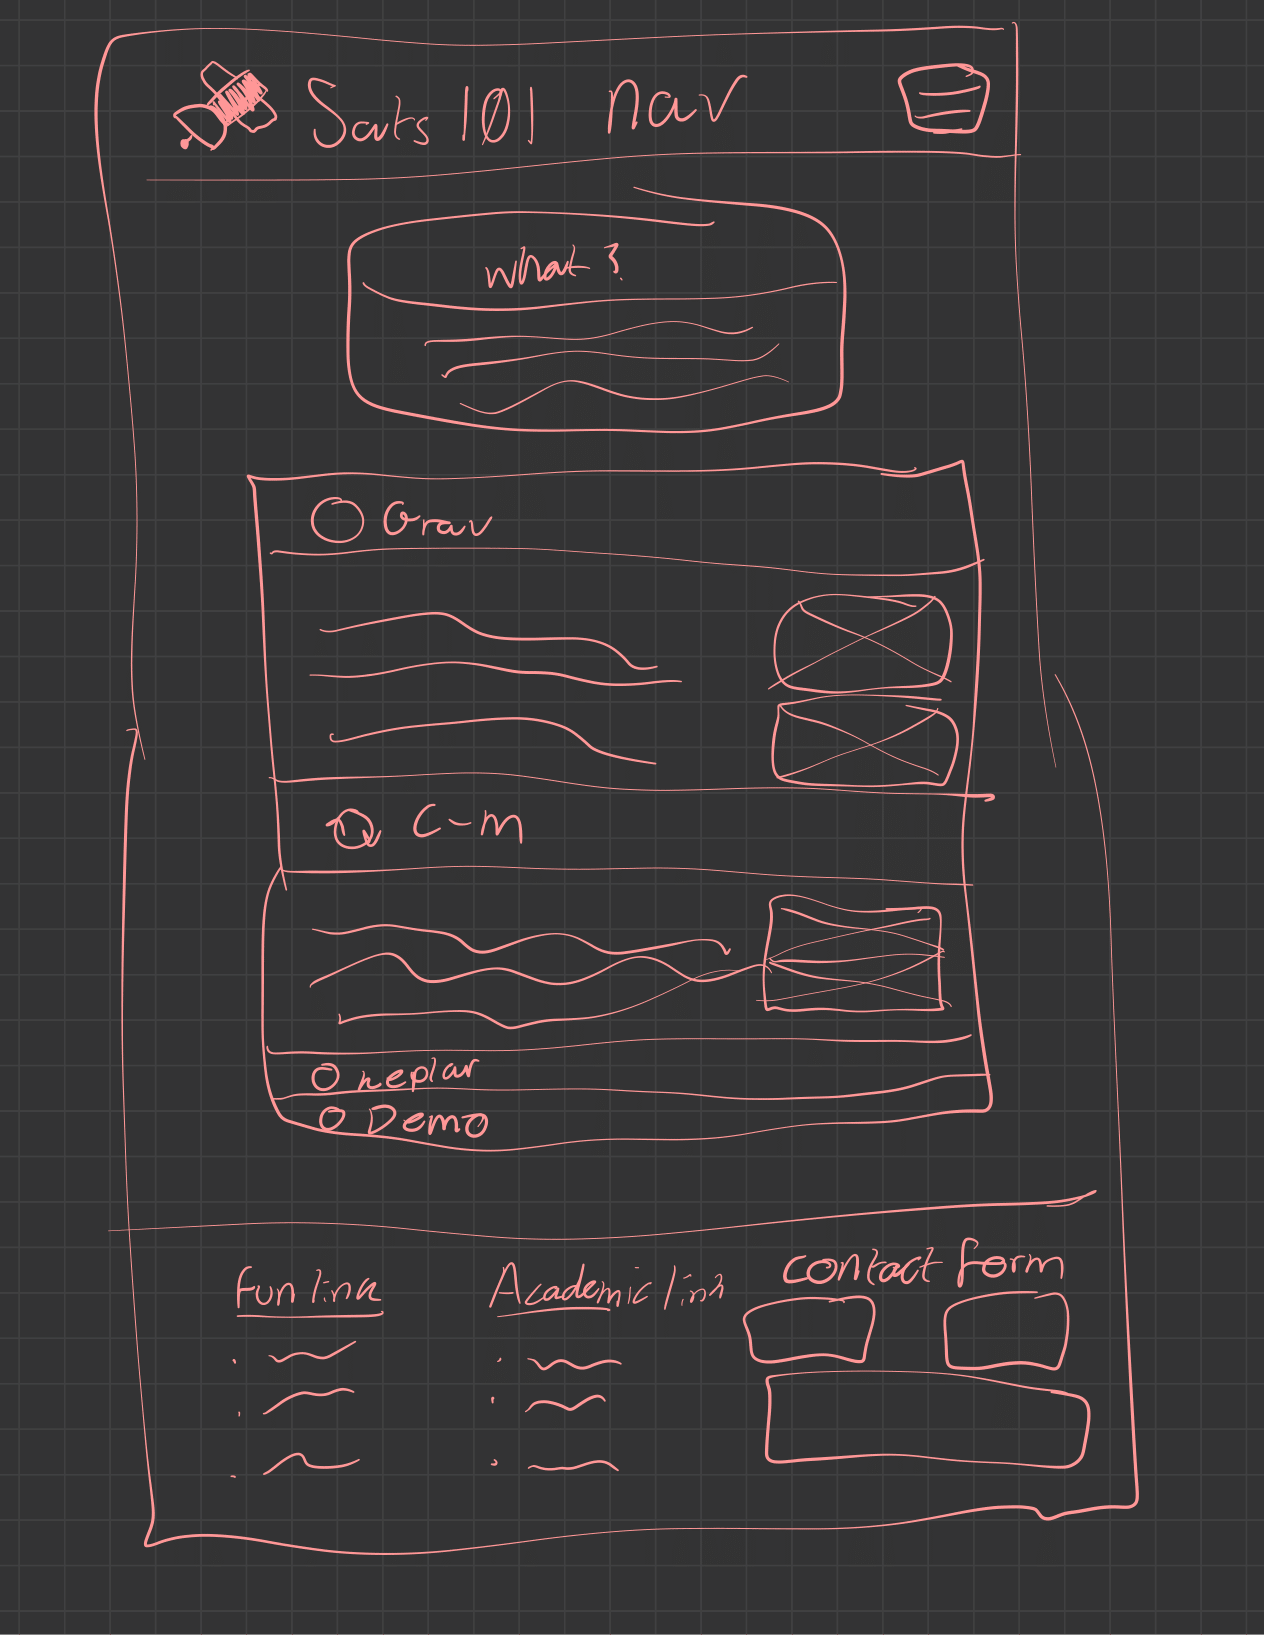 Sats 101 nav
what?
Grav
C-m
keplar
Demo
Fun link
Academic link
contact form